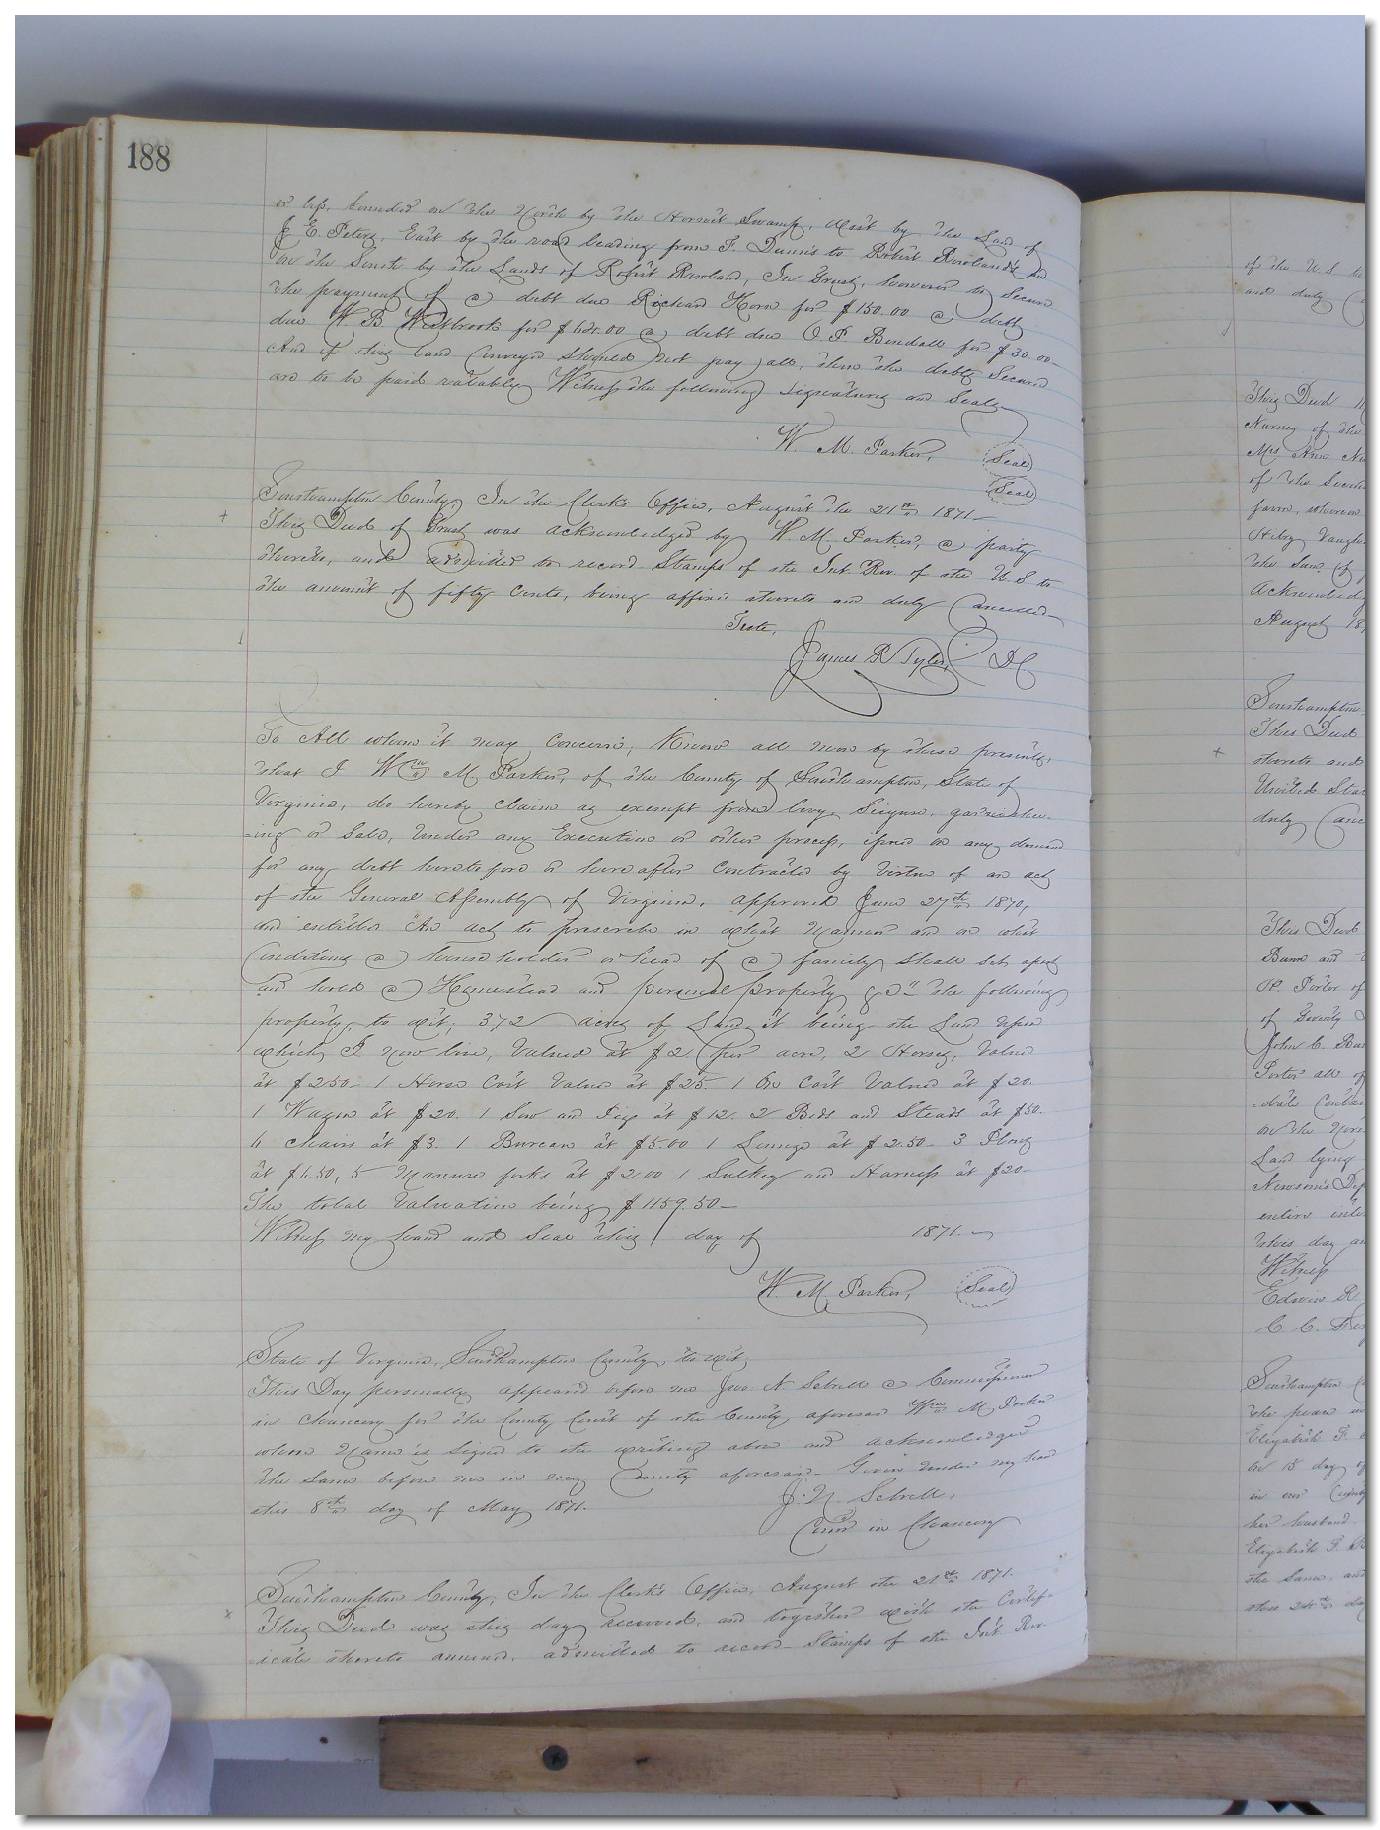 188
or less, bounded on the North by the Hornet Swamp, West by the Land of
J. E. Peters, East by the road leading from F. Dunn's to Robert Rowland's and
on the South by the Lands of Robert Rowland, In Trust, however to Secure
the payment of a debt due Richard Horn for $150.00 a debt
due W B Westbrook for $ a debt due O P Bendall for $30.00
And if this land Conveyed Should not pay all, then the debts Secured
are to be paid ratably Witness the following signatures and Seals
W. M. Parker, (Seal)
(Seal)
Southampton County, In the Clerk's Office, August the 21st 1871
This Deed of Trust was acknowledged by W. M. Parker, a party
thereto, and admitted to record Stamps of the Int. Rev. of the U. S to
the amount of fifty Cents, being affixed thereto and duly Cancelled
Teste,
James R Tyler, DC
To All whom it may Concern, Know all men by these presents,
that I Wm M Parker, of the County of Southampton, State of
Virginia, do hereby Claim as exempt from levy Seizure, garnishee-
-ing or Sale, Under any Execution or other process, issued on any demand
for any debt heretofore or hereafter Contracted by Virtue of an act
of the General Assembly of Virginia, approved June 27th 1870,
and entitled "An act to prescribe in what Manner and on what
Conditions a householder or head of a family Shall Set apart
and hold a Homestead and personal property &c" the following
property, to wit; 372 acres of Land it being the Land Upon
which I now live, Valued at $2 per acre, 2 Horses, Valued
at $250- 1 Horse Cart Valued at $25- 1 Ox Cart Valued at $20.
1 Wagon at $20. 1 Sow and Pigs at $12. 2 Beds and Steads at $50-
6 Chairs at $3. 1 Bureau at $5.00 1 Lounge at $2.50- 3 Plows
at $1.50, 5 Manure forks at $2.00 1 Sulkey and Harness at $20-
The total Valuation being $1159.50-
Witness my hand and Seal this day of 1871.
W. M. Parker, (Seal)
State of Virginia, Southampton County, to wit,
This Day personally appeared before me Jno. N Sebrell a Commissioner
in Chancery for the County Court of the County aforesaid Wm M, Parker
whose Name is Signed to the writing above and acknowledged
the Same before me in my County aforesaid- Given Under my hand
this 8th day of May 1871.
J. N. Sebrell,
Comr in Chancery
Southampton County, In the Clerk's Office, August the 21st 1871.
This Deed was this day received, and together with the Certif-
-icate thereto annexed, admitted to record- Stamps of the Int. Rev.
of the U.S to
and duly
This Deed
Nurney of the
Mrs Ann
of the Seco
farm, whereon
the Sum of
Acknowledg
August 18
Southampton
This Deed
thereto and
United Stat
duly Canc
This Deed
Porter of
of Seventy
John C. Ba
Porter all of
on the Nor
Land lying
Newsoms Dep
entire int
this day an
Witness
Edwin R
Southampton
the peace
Elizabeth F.
on 15 day of
in our County
her husband
Elizabeth F.
the Same, and
this 24th da